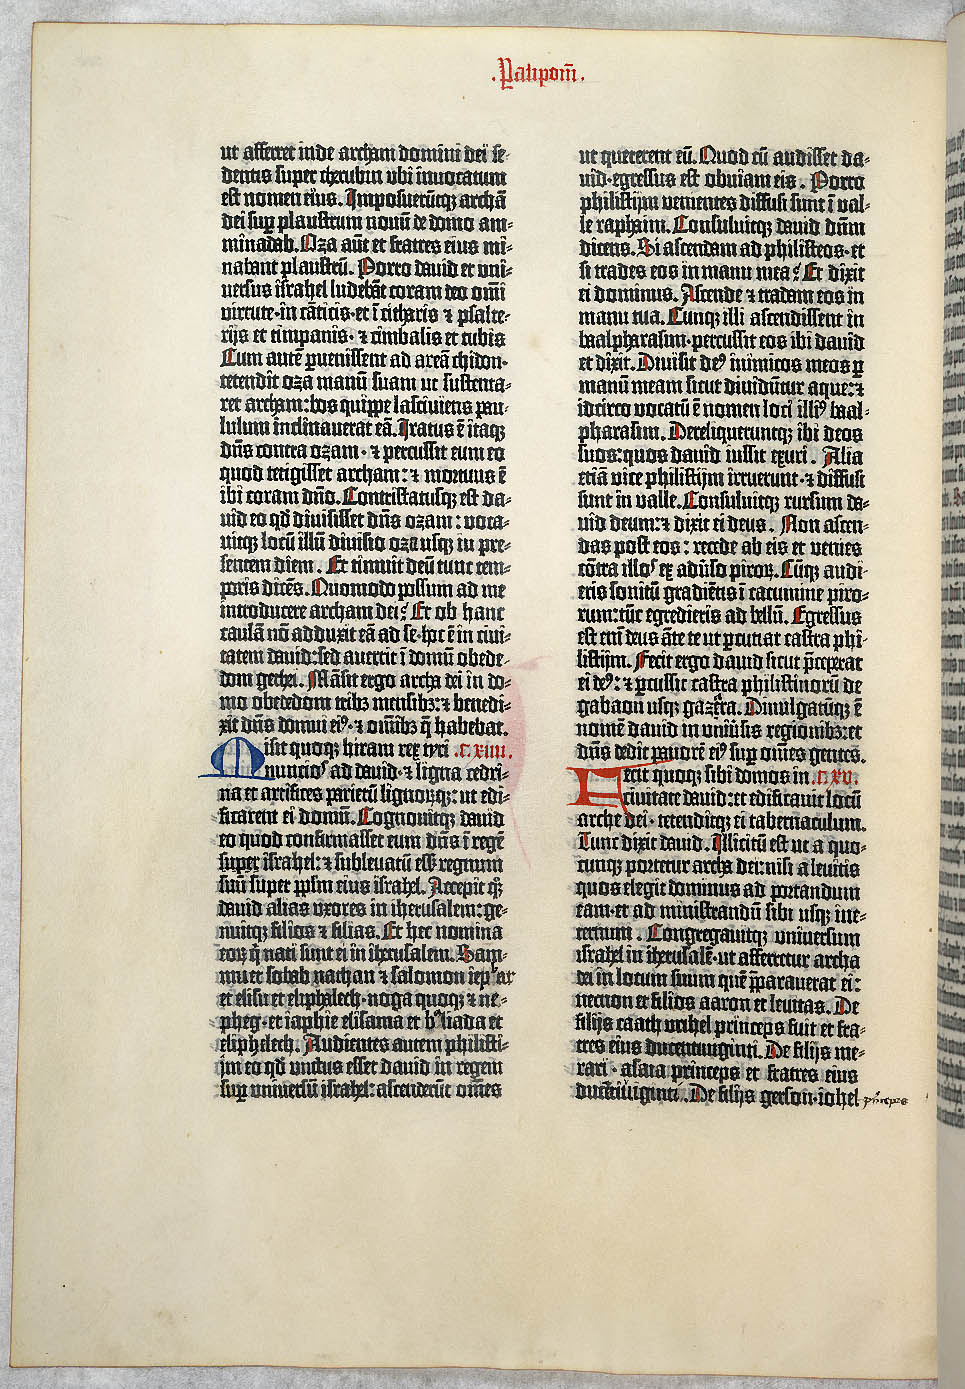 .Palipom̄.
ut afferret inde archam domini dei se-
dentis super cherubin ubi invocatum
est nomen eius. Imposueruntq; archā
dei sup̱ plaustrum novū de domo am-
minadab. Oza aūt et fratres eius mi-
nabant plaustrū. Porro david et uni-
versus israhel ludebāt coram deo om̄i
virtute·in cāticis·et ī citharis ⁊ psalte-
rijs et timpanis·⁊ cimbalis et tubis
Cum autē p̱venissent ad areā chidon·
tetendit oza manū suam ut sustenta-
ret archam:bos quippe lasciviens pau-
lulum inclinaverat eā. Iratus ē itaq;
dn̄s contra ozam·⁊ percussit eum eo
quod tetigisset archam:⁊ mortuus ē
ibi coram dn̄o. Contristatusq; est da-
vid eo qd̄ divisisset dn̄s ozam:voca-
vitq; locū illū divisio oza usq; in pre-
sentem diem. Et timuit deū tunc tem-
poris dicēs. Quomodo possum ad me
introducere archam dei? Et ob hanc
causā nō adduxit eā ad se·hoc ē in civi-
tatem david:sed avertit ī domū obede-
dom gethei. Māsit ergo archa dei in do-
mo obededom tribꝫ mensibꝫ:⁊ benedi-
xit dn̄s domui eiꝰ·⁊ om̄ibꝫ q̄ habebat.
Misit quoq; hiram rex tyri .C.XIIII.
nuncioſ ad david·⁊ ligna cedri-
na et artifices parietū lignorūq;:ut edi-
ficarent ei domū. Cognovitq; david
eo quod confirmasset eum dn̄s ī regē
super israhel:⁊ sublevatū ess̄ regnum
suū super pp̄lm eius israhel. Accepit q;
david alias uxores in iherusalem:ge-
nuitq; filios ⁊ filias. Et hec nomina
eorꝫ q̇ nati sunt ei in iherusalem. Sam-
mue et sobab nathan ⁊ salomon iepbar
et elisu et eliphalech·noga quoq; ⁊ ne-
pheg·et iaphie elisama et baliada et
eliphelech. Audientes autem philisti-
im eo qd̄ unctus esset david in regem
sup̱ universū israhel:ascenderūt om̄es
ut quererent eū. Quod cū audisset da-
vid·egressus est obviam eis. Porro
philistijm venientes diffusi sunt ī val-
le raphaim. Consuluitq; david dn̄m
dicens. Si ascendam ad philisteos·et
si trades eos in manu mea? Et dixit
ei dominus. Ascende ⁊ tradam eos in
manu tua. Cumq; illi ascendissent in
baalpharasim·percussit eos ibi david
et dixit. Divisit deꝰ inimicos meos p̱
manū meam sicut dividūtur aque:⁊
idcirco vocatū ē nomen loci illiꝰ baal-
pharasim. Dereliqueruntq; ibi deos
suos:quos david iussit exuri. Alia
etiā vice philistijm irruerunt·⁊ diffusi
sunt in valle. Consuluitq; rursum da-
vid deum:⁊ dixit ei deus. Non ascen-
das post eos:recede ab eis et venies
cōtra illoſ ex adūso pirorꝫ. Cūq; audi-
eris sonitū gradiētis ī cacumine piro-
rum:tūc egredieris ad bellū. Egressus
est eni deus āte te ut p̱cutiat castra phi-
listijm. Fecit ergo david sicut p̄ceperat
ei deꝰ:⁊ p̱cussit castra philistinorū de
gabaon usq; gazera. Divulgatūq; ē
nomē david in univ̄sis regionibꝫ:et
dn̄s dedit pavorē eiꝰ sup̱ om̄es gentes.
Fecit quoq; sibi domos in .C.XV.
civitate david:et edificavit locū
arche dei·tetenditq; ei tabernaculum.
Tunc dixit david. Illicitū est ut a quo-
cunq; portetur archa dei:nisi a levitis
quos elegit dominus ad portandum
eam·et ad ministrandū sibi usq; in e-
ternum. Congregavitq; universum
israhel in iherusalē·ut afferretur archa
dei in locum suum quē p̄paraverat ei:
necnon et filios aaron et levitas. De
filijs caath urihel princeps fuit et fra-
tres eius ducentiviginti. De filijs me-
rari·asaia princeps et fratres eius
ducētiviginti. De filijs gerson·iohel princeps